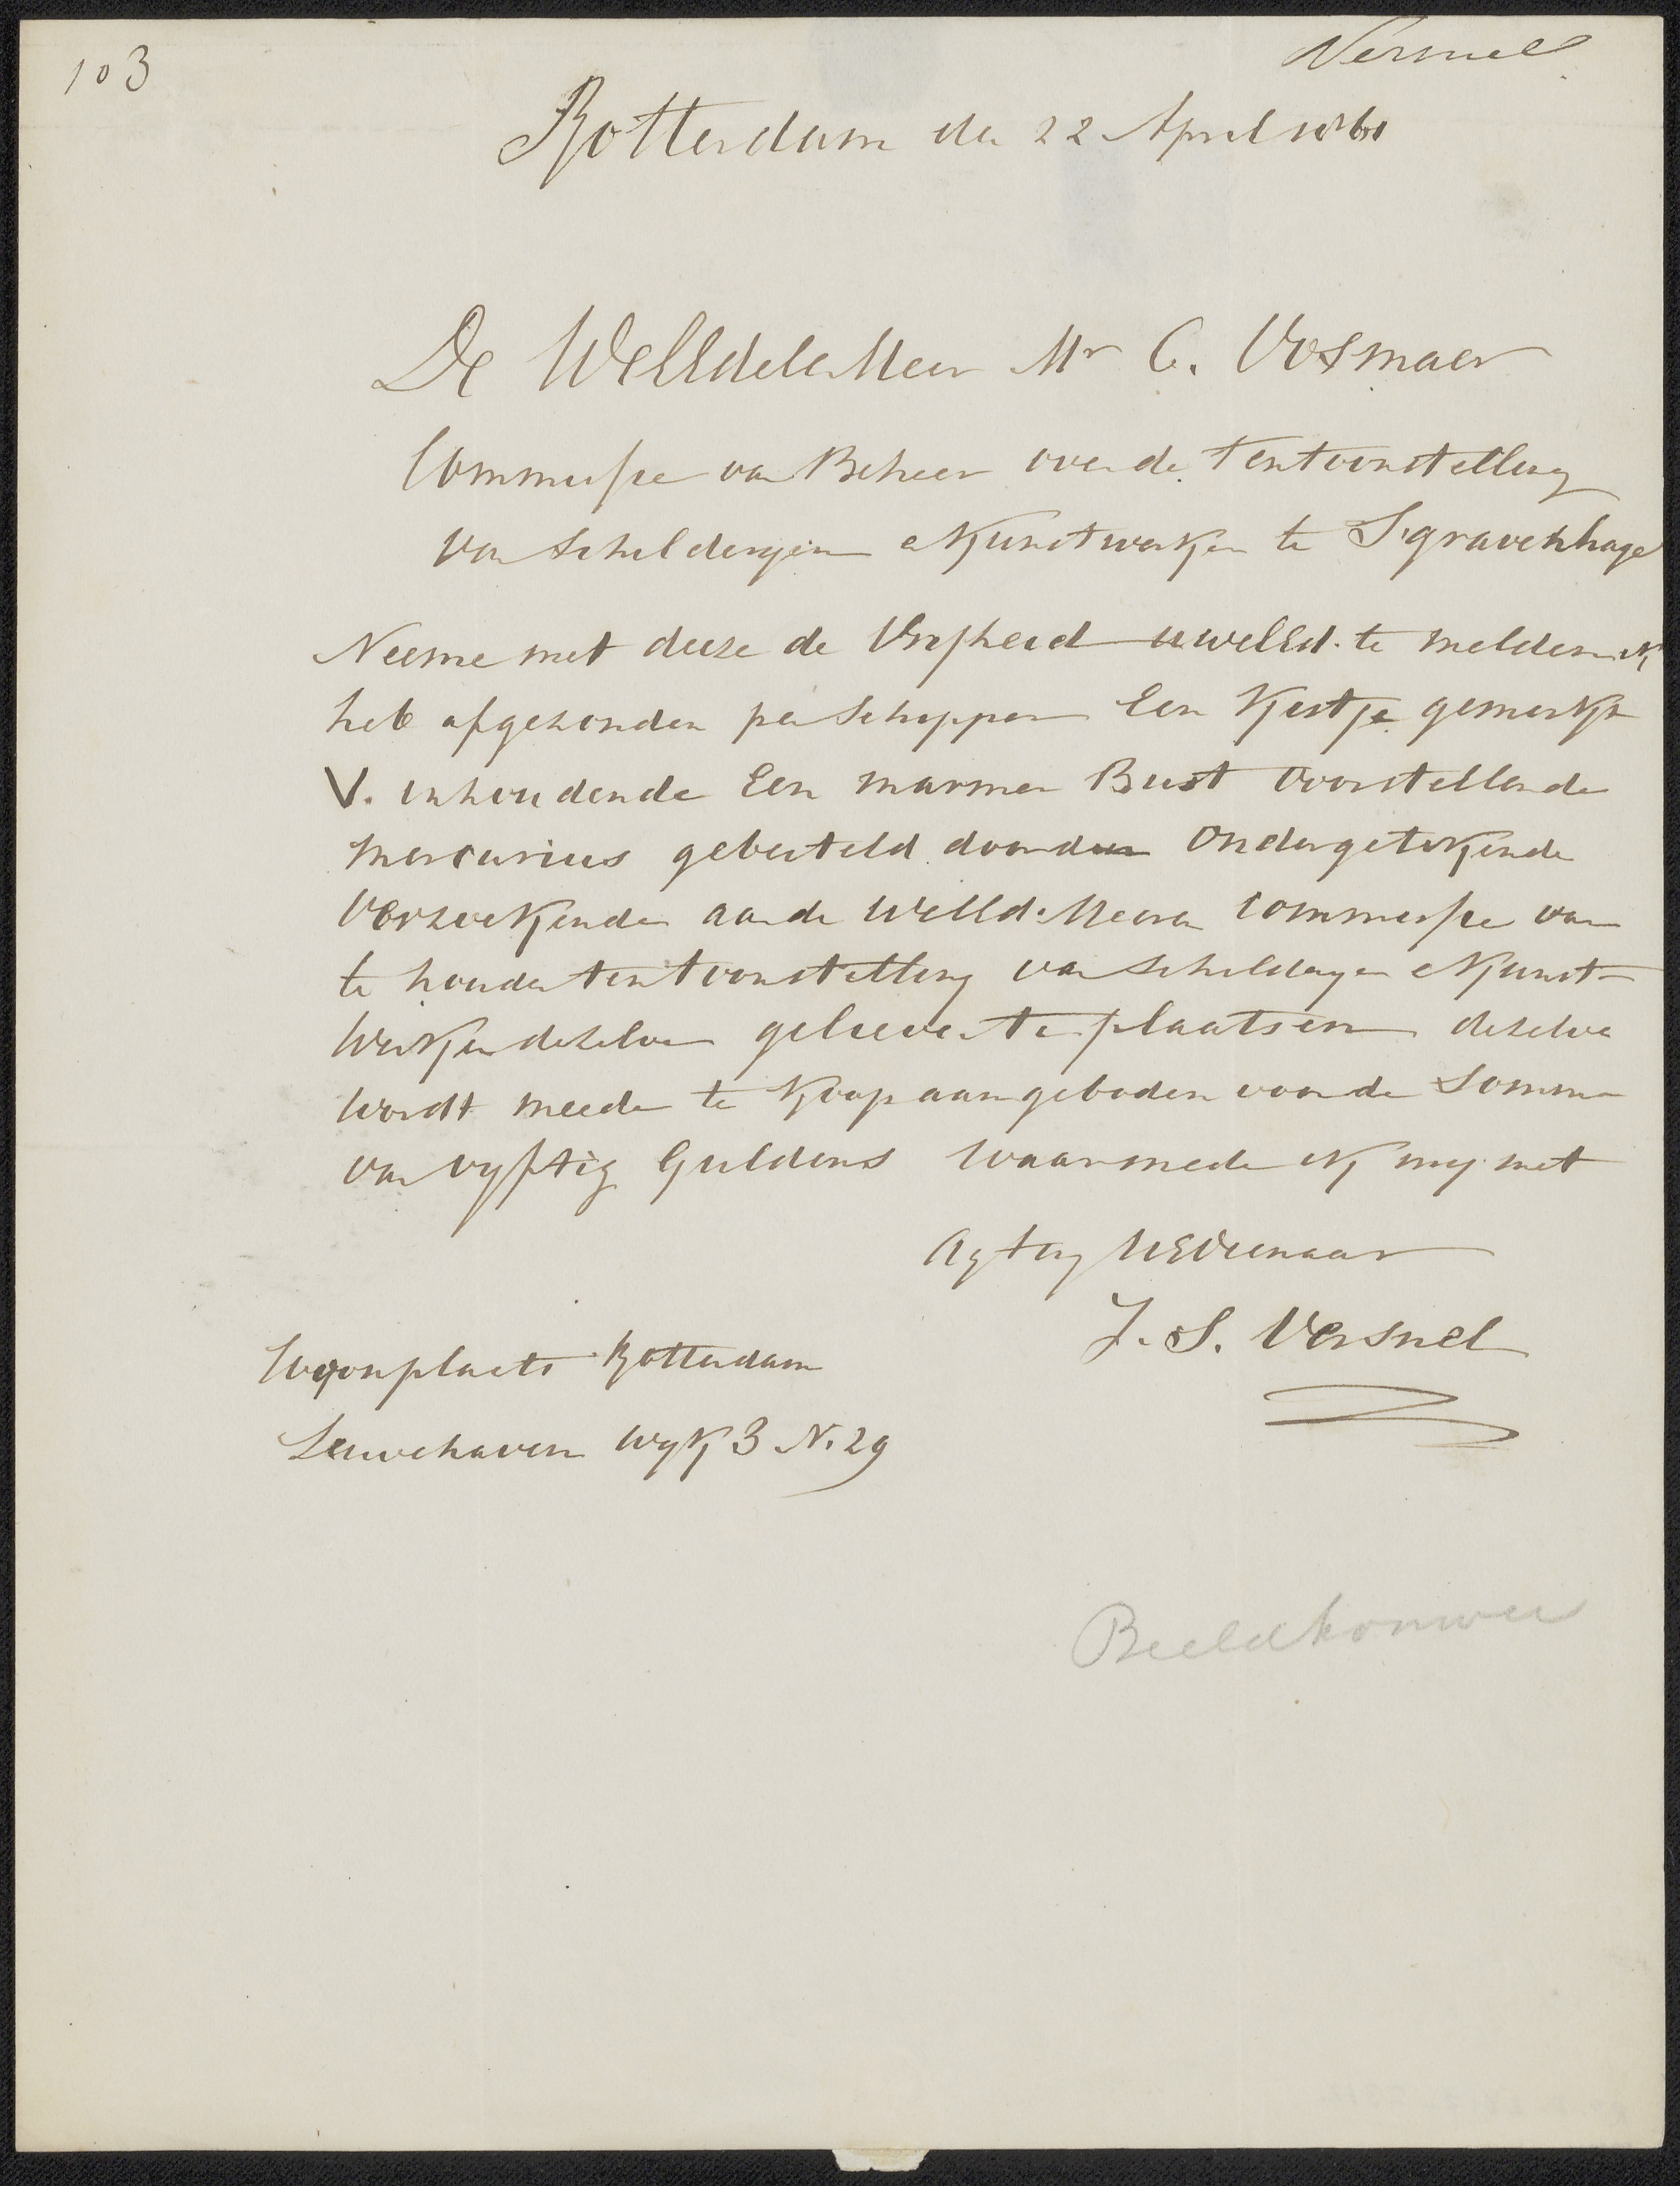 103
Versnel
Rotterdam den 22 April 1861
De WelEdele Heer Mr C. Vosmaer
Commissie van Beheer over de Tentoonstelling
van Schilderyen en Kunstwerken te S'gravenhage
Neeme met deeze de Vryheid uwelEd. te melden ik
heb afgezonden per Schipper Een Kistje gemerkt
V. inhoudende Een marmer Bust voorstellende
mercurius gebeiteld door den ondergetekende
Verzoekende aan de WelEd. Heeren Commissie van
te houden tentoonstelling van Schilderyen en Kunst-
Werken dezelve gelieve te plaatsen dezelve
Wordt meede te Koop aangeboden voor de Somma
van vyftig Guldens Waarmede ik my met
Agting UEDienaar
J. S. Versnel
Woonplaats Rotterdam
Leuvehaven Wyk 3 N. 29
Beeldhouwer